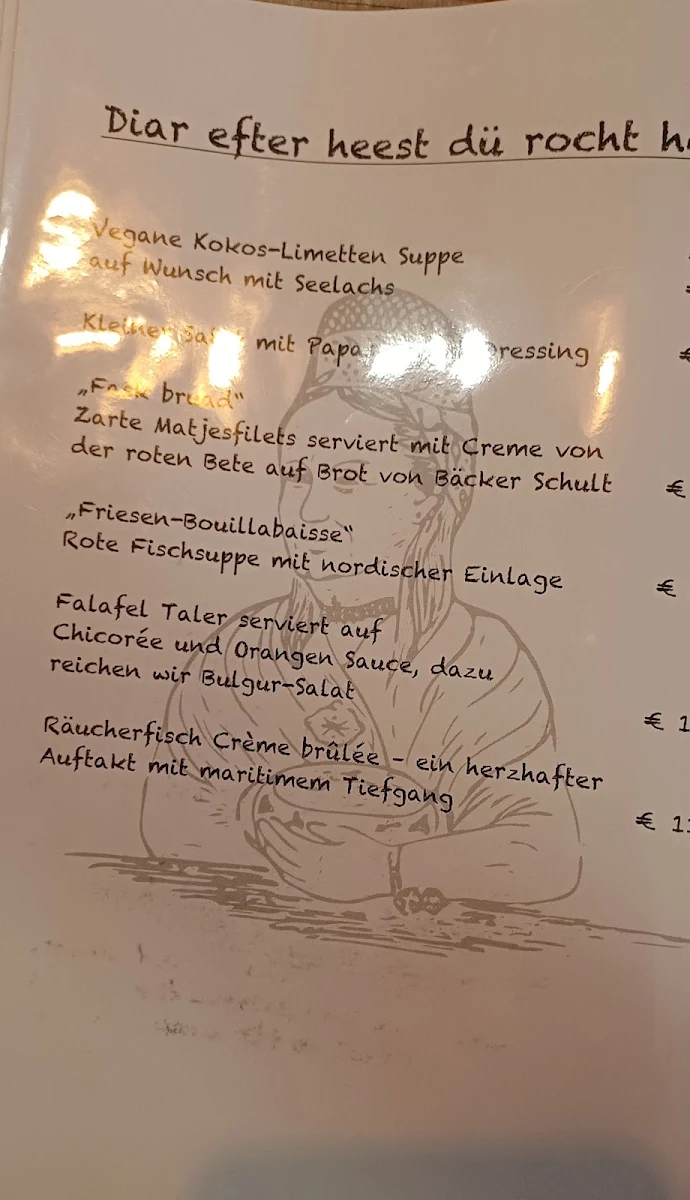 Diar efter heest dü rocht
Vegane Kokos-Limetten Suppe
auf Wunsch mit Seelachs
Kleiner mit €
„Fask bruad“
Zarte Matjesfilets serviert mit Creme von
der roten Bete auf Brot von Bäcker Schult €
„Friesen-Bouillabaisse“
Rote Fischsuppe mit nordischer Einlage €
Falafel Taler serviert auf
Chicorée und Orangen Sauce, dazu
reichen wir Bulgur-Salat € 1
Räucherfisch Crème brûlée - ein herzhafter
Auftakt mit maritimem Tiefgang € 11